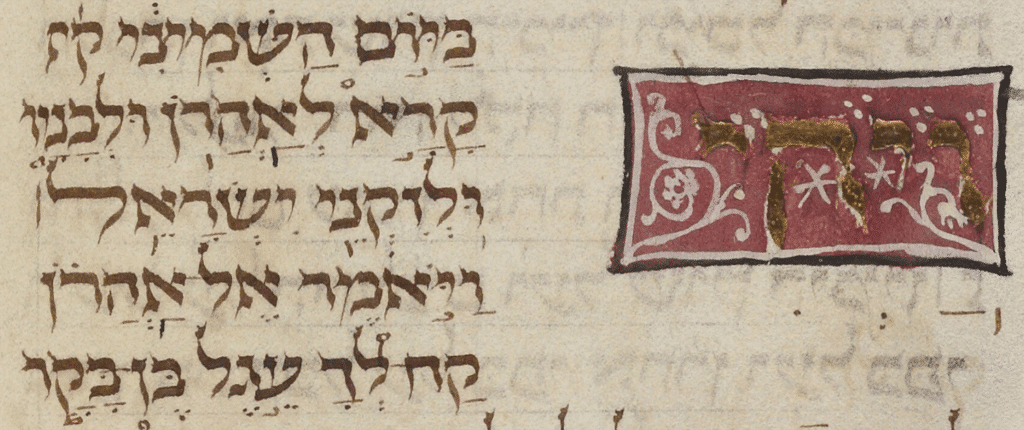 וַיְהִי
בַּיּוֹם הַשְּׁמִינִי קר
קָרָא לְאַהֲרֹן וּלְבָנָיו
וּלְזִקְנֵי יִשְׂרָאֵל
וַיֹּאמֶר אֶל אַהֲרֹן
קַח לְךָ עֵגֶל בֶּן בָּקָר